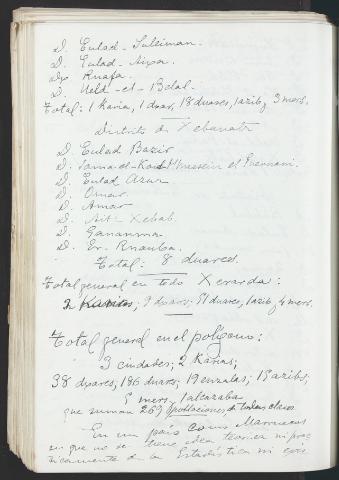 D. Eulad-Suleiman.
D. Eulad-Aixa.
dx Ruafa.
D. Ueld-et-Belal.
Total: 1 Karia, 1 dxar, 18 duares, 1 azib y 3 mers.
Distrito de Xebanat
D. Eulad Bazir
D. el
D. Eulad Azuz
D. Omar
D. Amar
D. Ait-Xebab
D. Ganamma
D. Er. Rnauba.
Total: 8 duares.
Total general en todo Xerarda:
9 dxars; 51 duares, 1 azib, 4 mers.
Total general en el polígono:
3 ciudades; 2 Karias;
38 dxares; 186 duars; 19 enzalas; 15 azibs,
5 mers, 1 alcazaba
que suman 269 poblaciones de todas clases
En un país como Marruecos
en que no se tiene idea teorica ni prac
ticamente de la Estadística ni